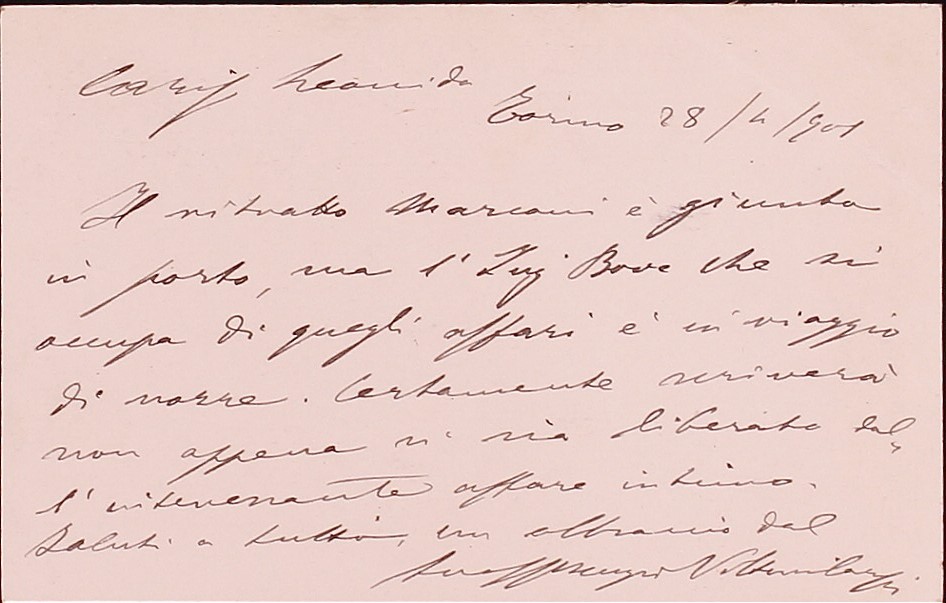 Leonida
Torino 28/4/901
Il ritratto Marconi è giunto
in porto, ma l'Ing Bove che si
occupa di quegli affari è in viaggio
di nozze. Certamente scriverà
non appena si sia liberato dal,,
l'interessante affare intimo.
Saluti a tutti, un abbraccio dal